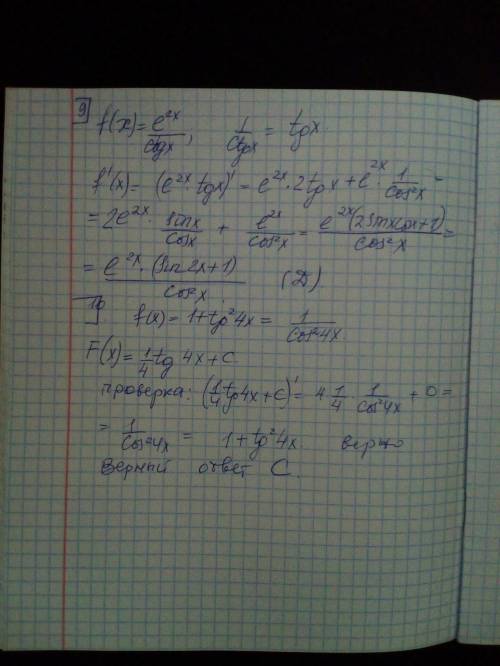 9
f(x) = e^2x / ctgx, 1/ctgx = tgx.
f'(x) = (e^2x · tgx)' = e^2x · 2tgx + e^2x · 1/cos²x =
= 2e^2x · sinx/cosx + e^2x/cos²x = e^2x(2sinxcosx+1)/cos²x =
= e^2x · (sin2x+1)/cos²x. (D)
10 f(x) = 1+tg²4x = 1/cos²4x
F(x) = 1/4 tg 4x + C.
проверка: (1/4 tg4x + C)' = 4 · 1/4 · 1/cos²4x + 0 =
= 1/cos²4x = 1 + tg²4x верно
Верный ответ C.